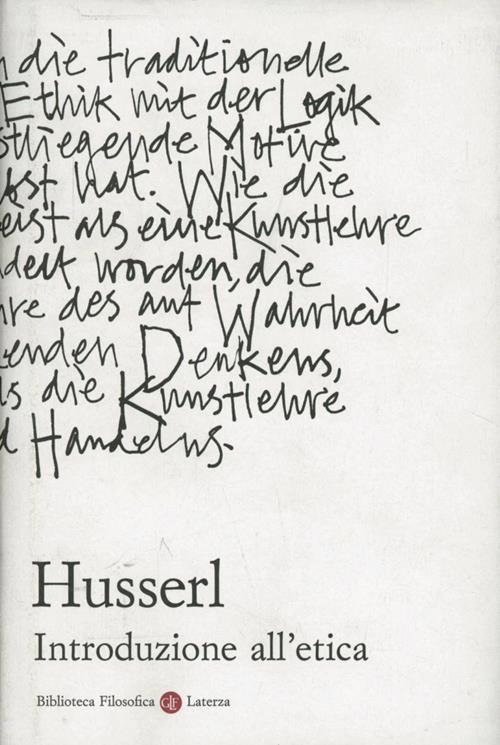 die traditionelle
Ethik mit der Logik
stliegende Motive
sst hat. Wie die
eist als eine Kunstlehre
delt worden, die
hre des auf Wahrheit
enden Denkens,
ls die Kunstlehre
d Handelns.
Husserl
Introduzione all'etica
Biblioteca Filosofica GLF Laterza